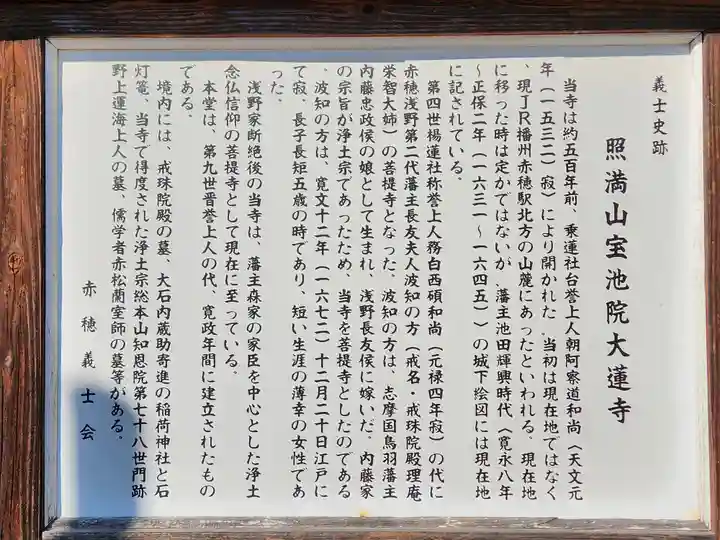 義士史跡
照満山宝池院大蓮寺
当寺は約五百年前、乗蓮社台誉上人朝阿察道和尚（天文元
年（一五三二）寂）により開かれた．当初は現在地ではなく
、現ＪＲ播州赤穂駅北方の山麓にあったといわれる．現在地
に移った時は定かではないが．藩主池田輝興時代（寛永八年
～正保二年（一六三一～一六四五））の城下絵図には現在地
に記されている．
第四世楊蓮社称誉上人務白西碩和尚（元禄四年寂）の代に
赤穂浅野第二代藩主長友夫人波知の方（戒名・戒珠院殿理庵
栄智大姉）の菩提寺となった．波知の方は、志摩国鳥羽藩主
内藤忠政侯の娘として生まれ、浅野長友侯に嫁いだ．内藤家
の宗旨が浄土宗であったため、当寺を菩提寺としたのである
．波知の方は、寛文十二年（一六七二）十二月二十日江戸に
て寂、長子長矩五歳の時であり、短い生涯の薄幸の女性であ
った．
浅野家断絶後の当寺は、藩主森家の家臣を中心とした浄土
念仏信仰の菩提寺として現在に至っている．
本堂は、第九世晋誉上人の代、寛政年間に建立されたもの
である．
境内には、戒珠院殿の墓、大石内蔵助寄進の稲荷神社と石
灯篭、当寺で得度された浄土宗総本山知恩院第七十八世門跡
野上運海上人の墓、儒学者赤松蘭室師の墓等がある．
赤穂義士会